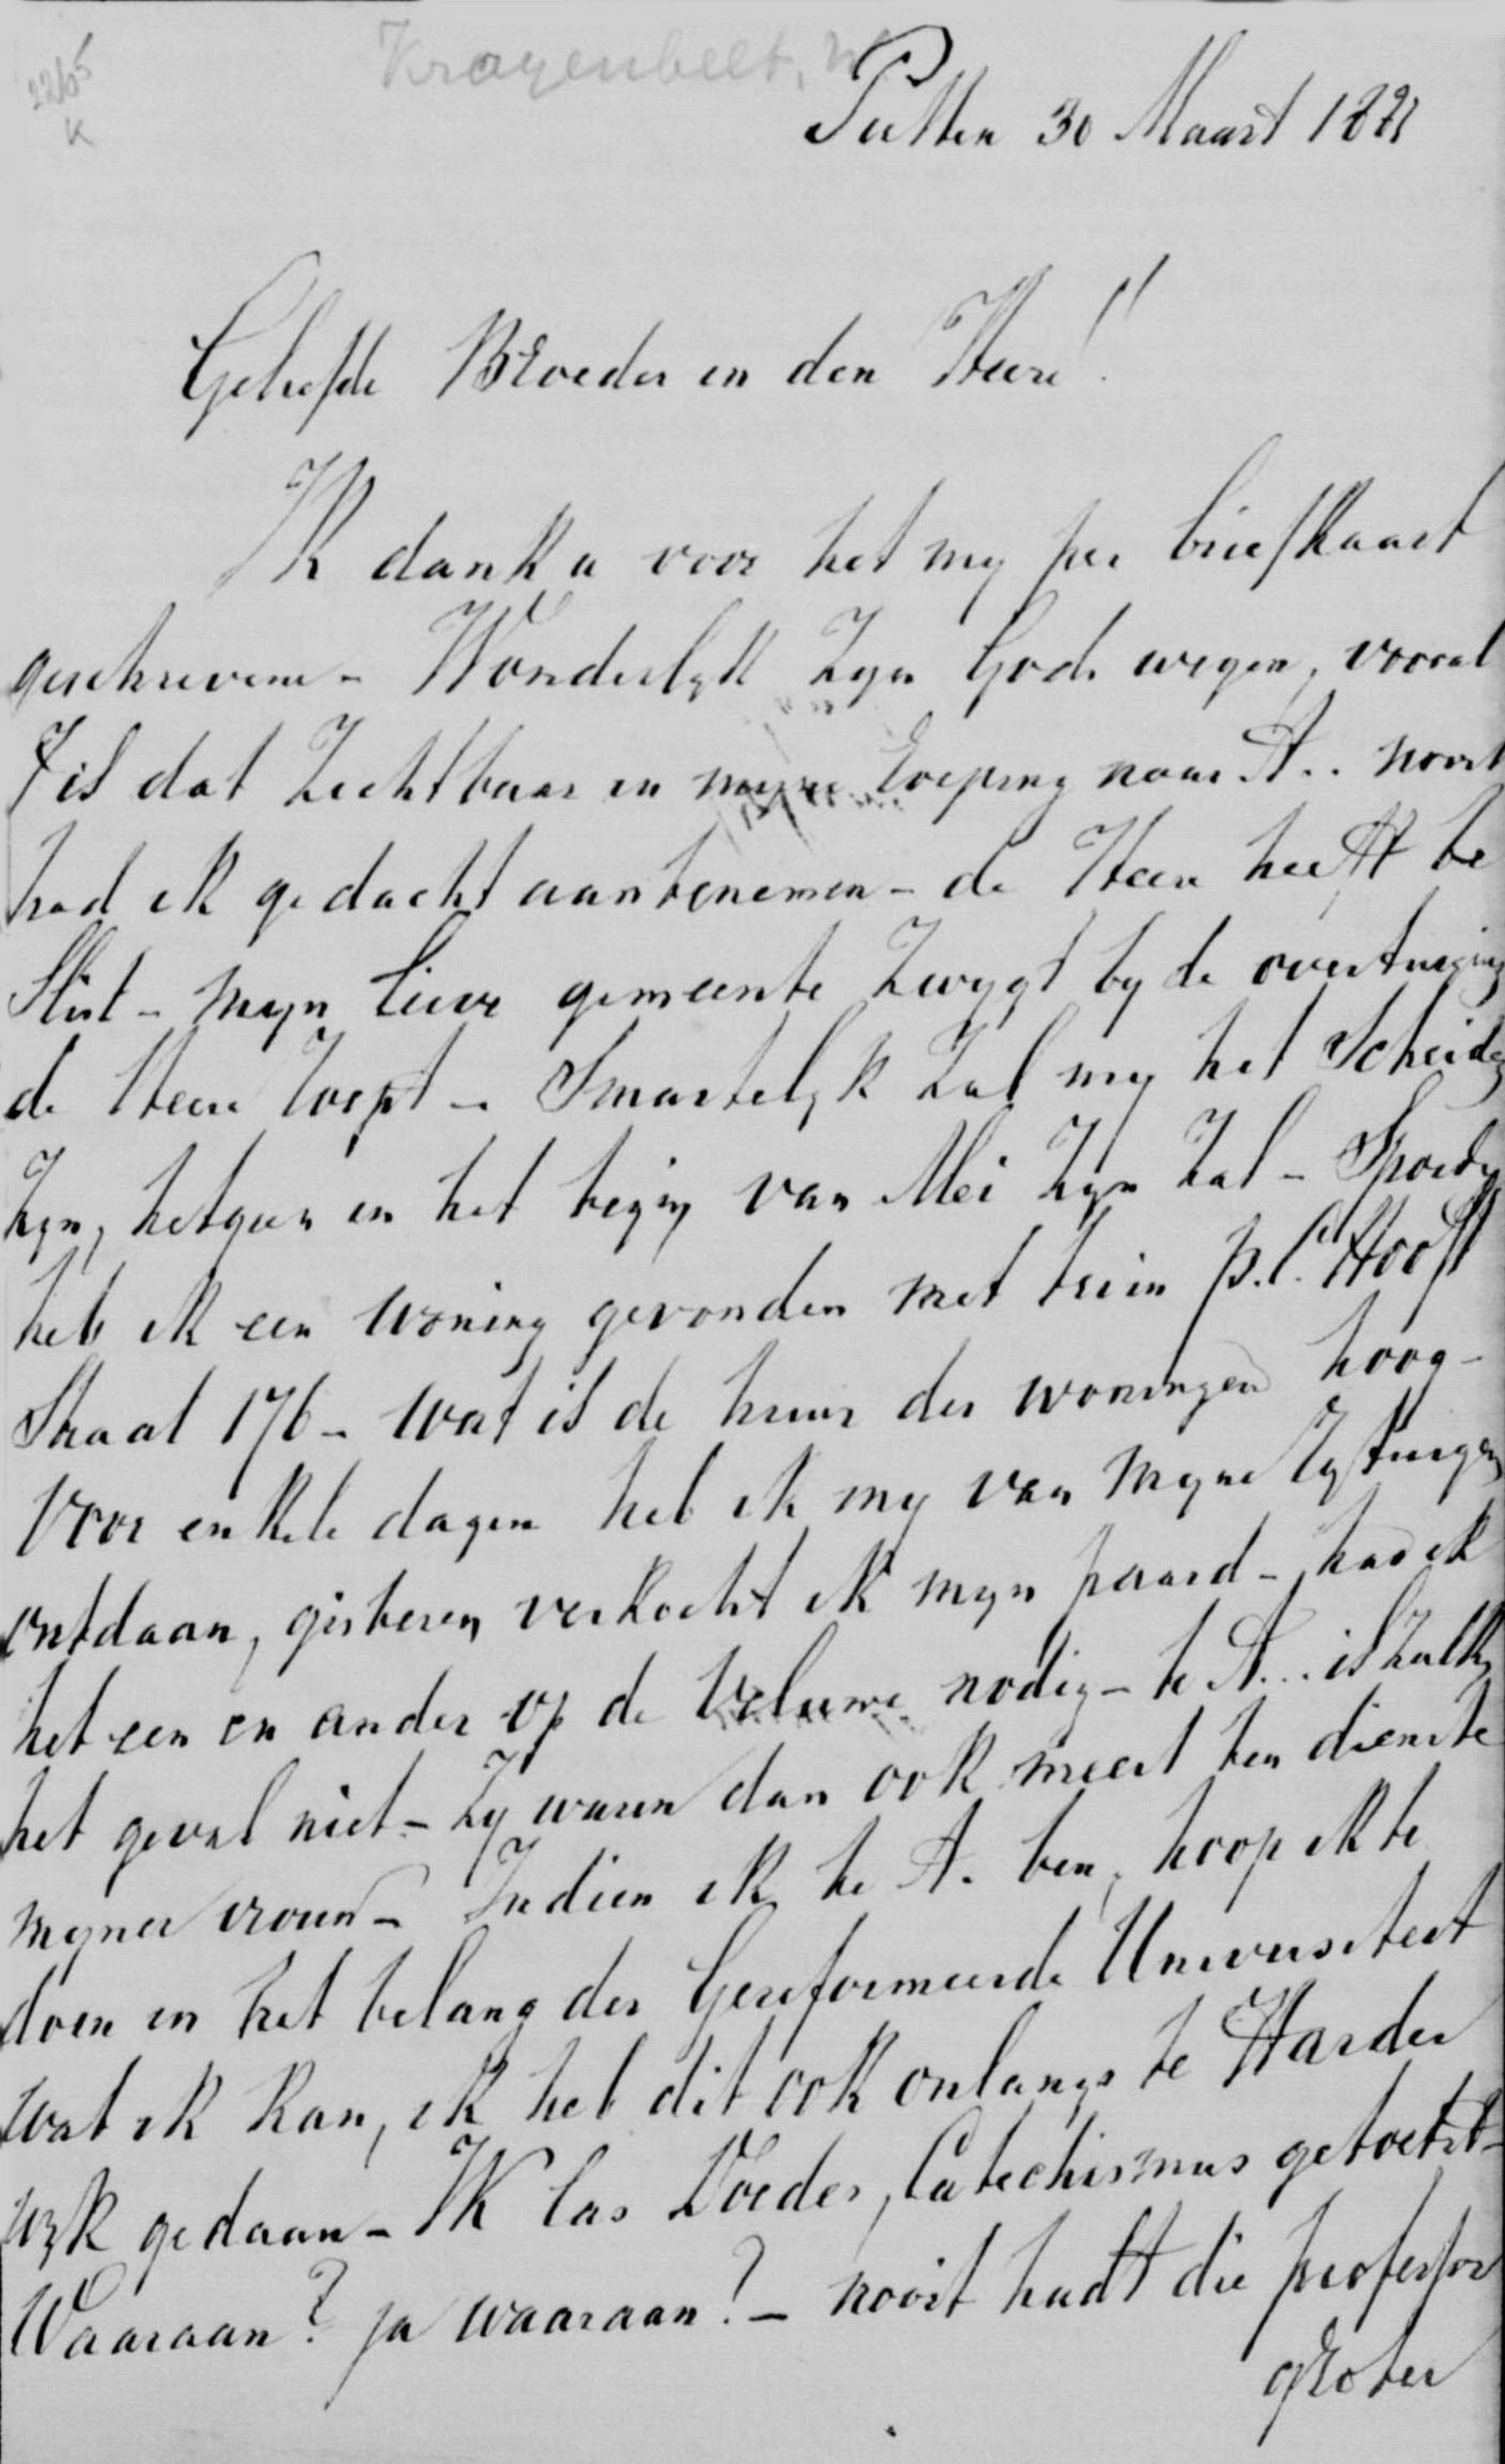 2265
K
Krayenbelt,
Putten 30 Maart 1881
Geliefde Broeder in den Heere!
Ik dank u voor het my per briefkaart
geschrevene - Wonderlyk zyn Gods wegen, vooral
is dat zichtbaar in myne roeping naar A.. nooit
had ik gedacht aantenemen - de Heere heeft be
slist - Myn lieve gemeente zwygt by de overtuiging
de Heere roept - Smartelyk zal my het scheiden
zyn, hetgeen in het begin van Mei zyn zal - Spoedig
heb ik een woning gevonden met tuin P.C. Hooft
Straat 176 - wat is de huur der woningen hoog -
Voor enkele dagen heb ik my van myne rytuigen
ontdaan, gisteren verkocht ik myn paard - had ik
het een en ander op de Veluwe nodig - te A... is zulks
het geval niet - zy waren dan ook meest ten dienste
myner vrouw - Indien ik te A. ben, hoop ik te
doen in het belang der Gereformeerde Universiteit
wat ik kan, ik heb dit ook onlangs te Harder
wyk gedaan - Ik las Doedes, Catechismus getoetst -
Waaraan? ja waaraan? - nooit hadt die professor
groter